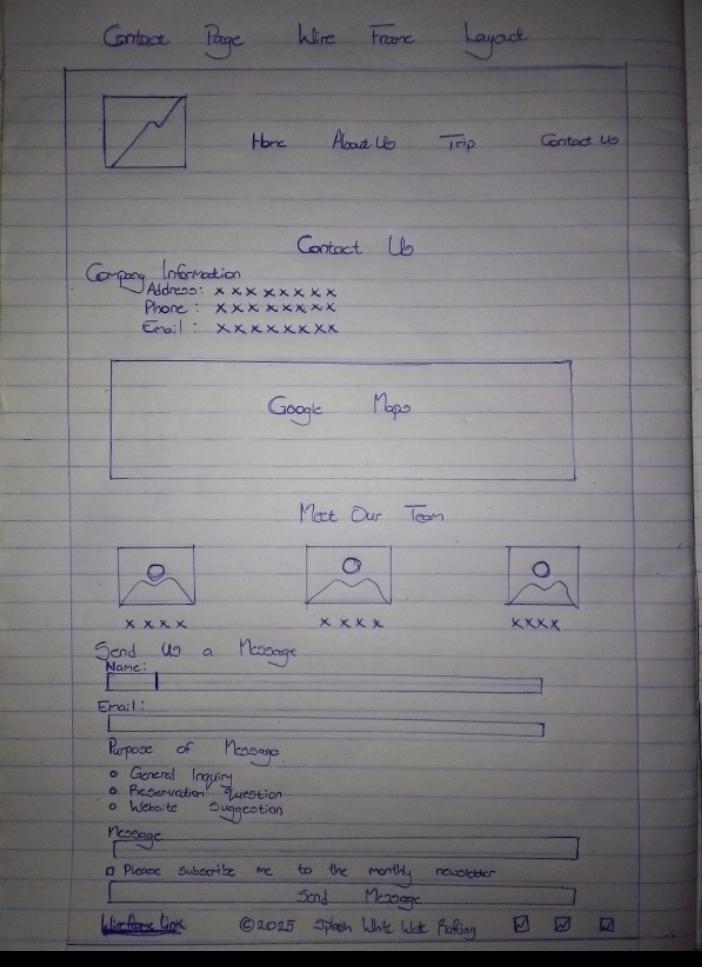 Contact Page Wire Frame Layout
Home About Us Trip Contact Us
Contact Us
Company Information
Address: x x x x x x x x
Phone : x x x x x x x x
Email : x x x x x x x x
Google Maps
Meet Our Team
x x x x x x x x x x x x
Send Us a Message
Name:
Email:
Purpose of Message
General Inquiry
Reservation Question
Website Suggestion
Message
Please subscribe me to the monthly newsletter
Send Message
Wireframe Link ©2025 Splash White Water Rafting